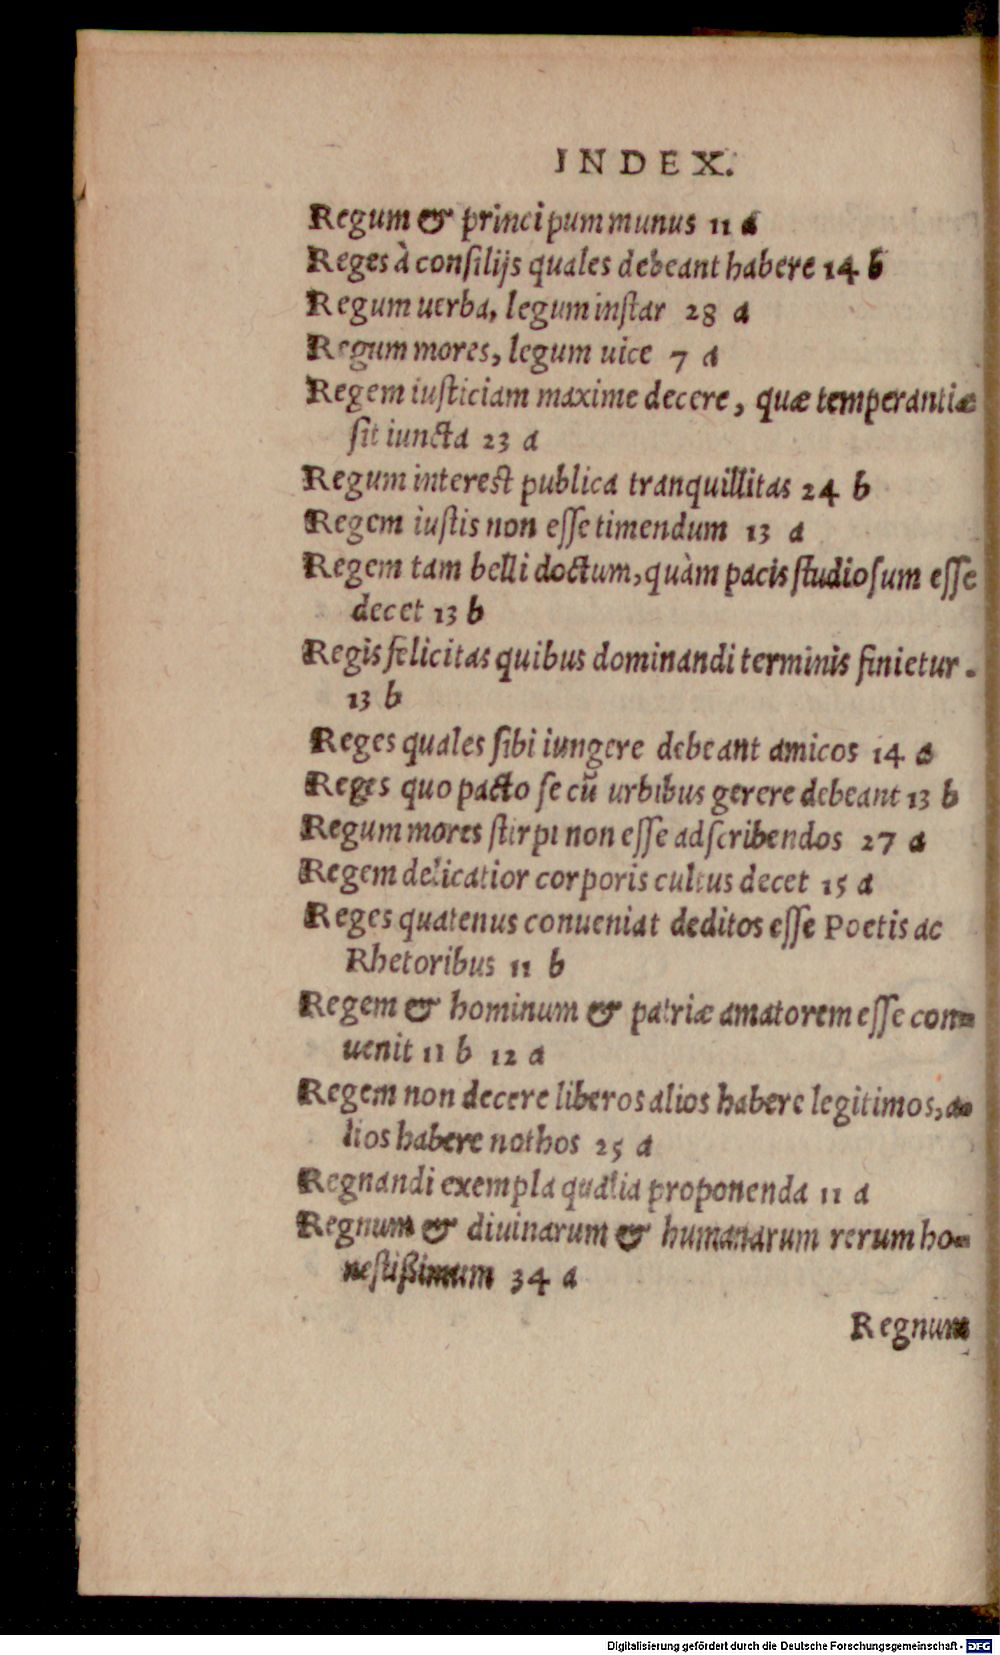 INDEX.
Regum & principum munus 11 a
Reges à consilijs quales debeant habere 14 b
Regum uerba, legum instar 28 a
Regum mores, legum uice 7 a
Regem iusticiam maxime decere, quæ temperantiæ
sit iuncta 23 a
Regum interest publica tranquillitas 24 b
Regem iustis non esse timendum 13 a
Regem tam belli doctum, quàm pacis studiosum esse
decet 13 b
Regis felicitas quibus dominandi terminis finietur.
13 b
Reges quales sibi iungere debeant amicos 14 a
Reges quo pacto se cũ urbibus gerere debeant 13 b
Regum mores stirpi non esse adscribendos 27 a
Regem delicatior corporis cultus decet 15 a
Reges quatenus conueniat deditos esse Poetis ac
Rhetoribus 11 b
Regem & hominum & patriæ amatorem esse con=
uenit 11 b 12 a
Regem non decere liberos alios habere legitimos, a=
lios habere nothos 25 a
Regnandi exempla qualia proponenda 11 a
Regnum & diuinarum & humanarum rerum ho=
nestißimum 34 a
Regnum
Digitalisierung gefördert durch die Deutsche Forschungsgemeinschaft - DFG